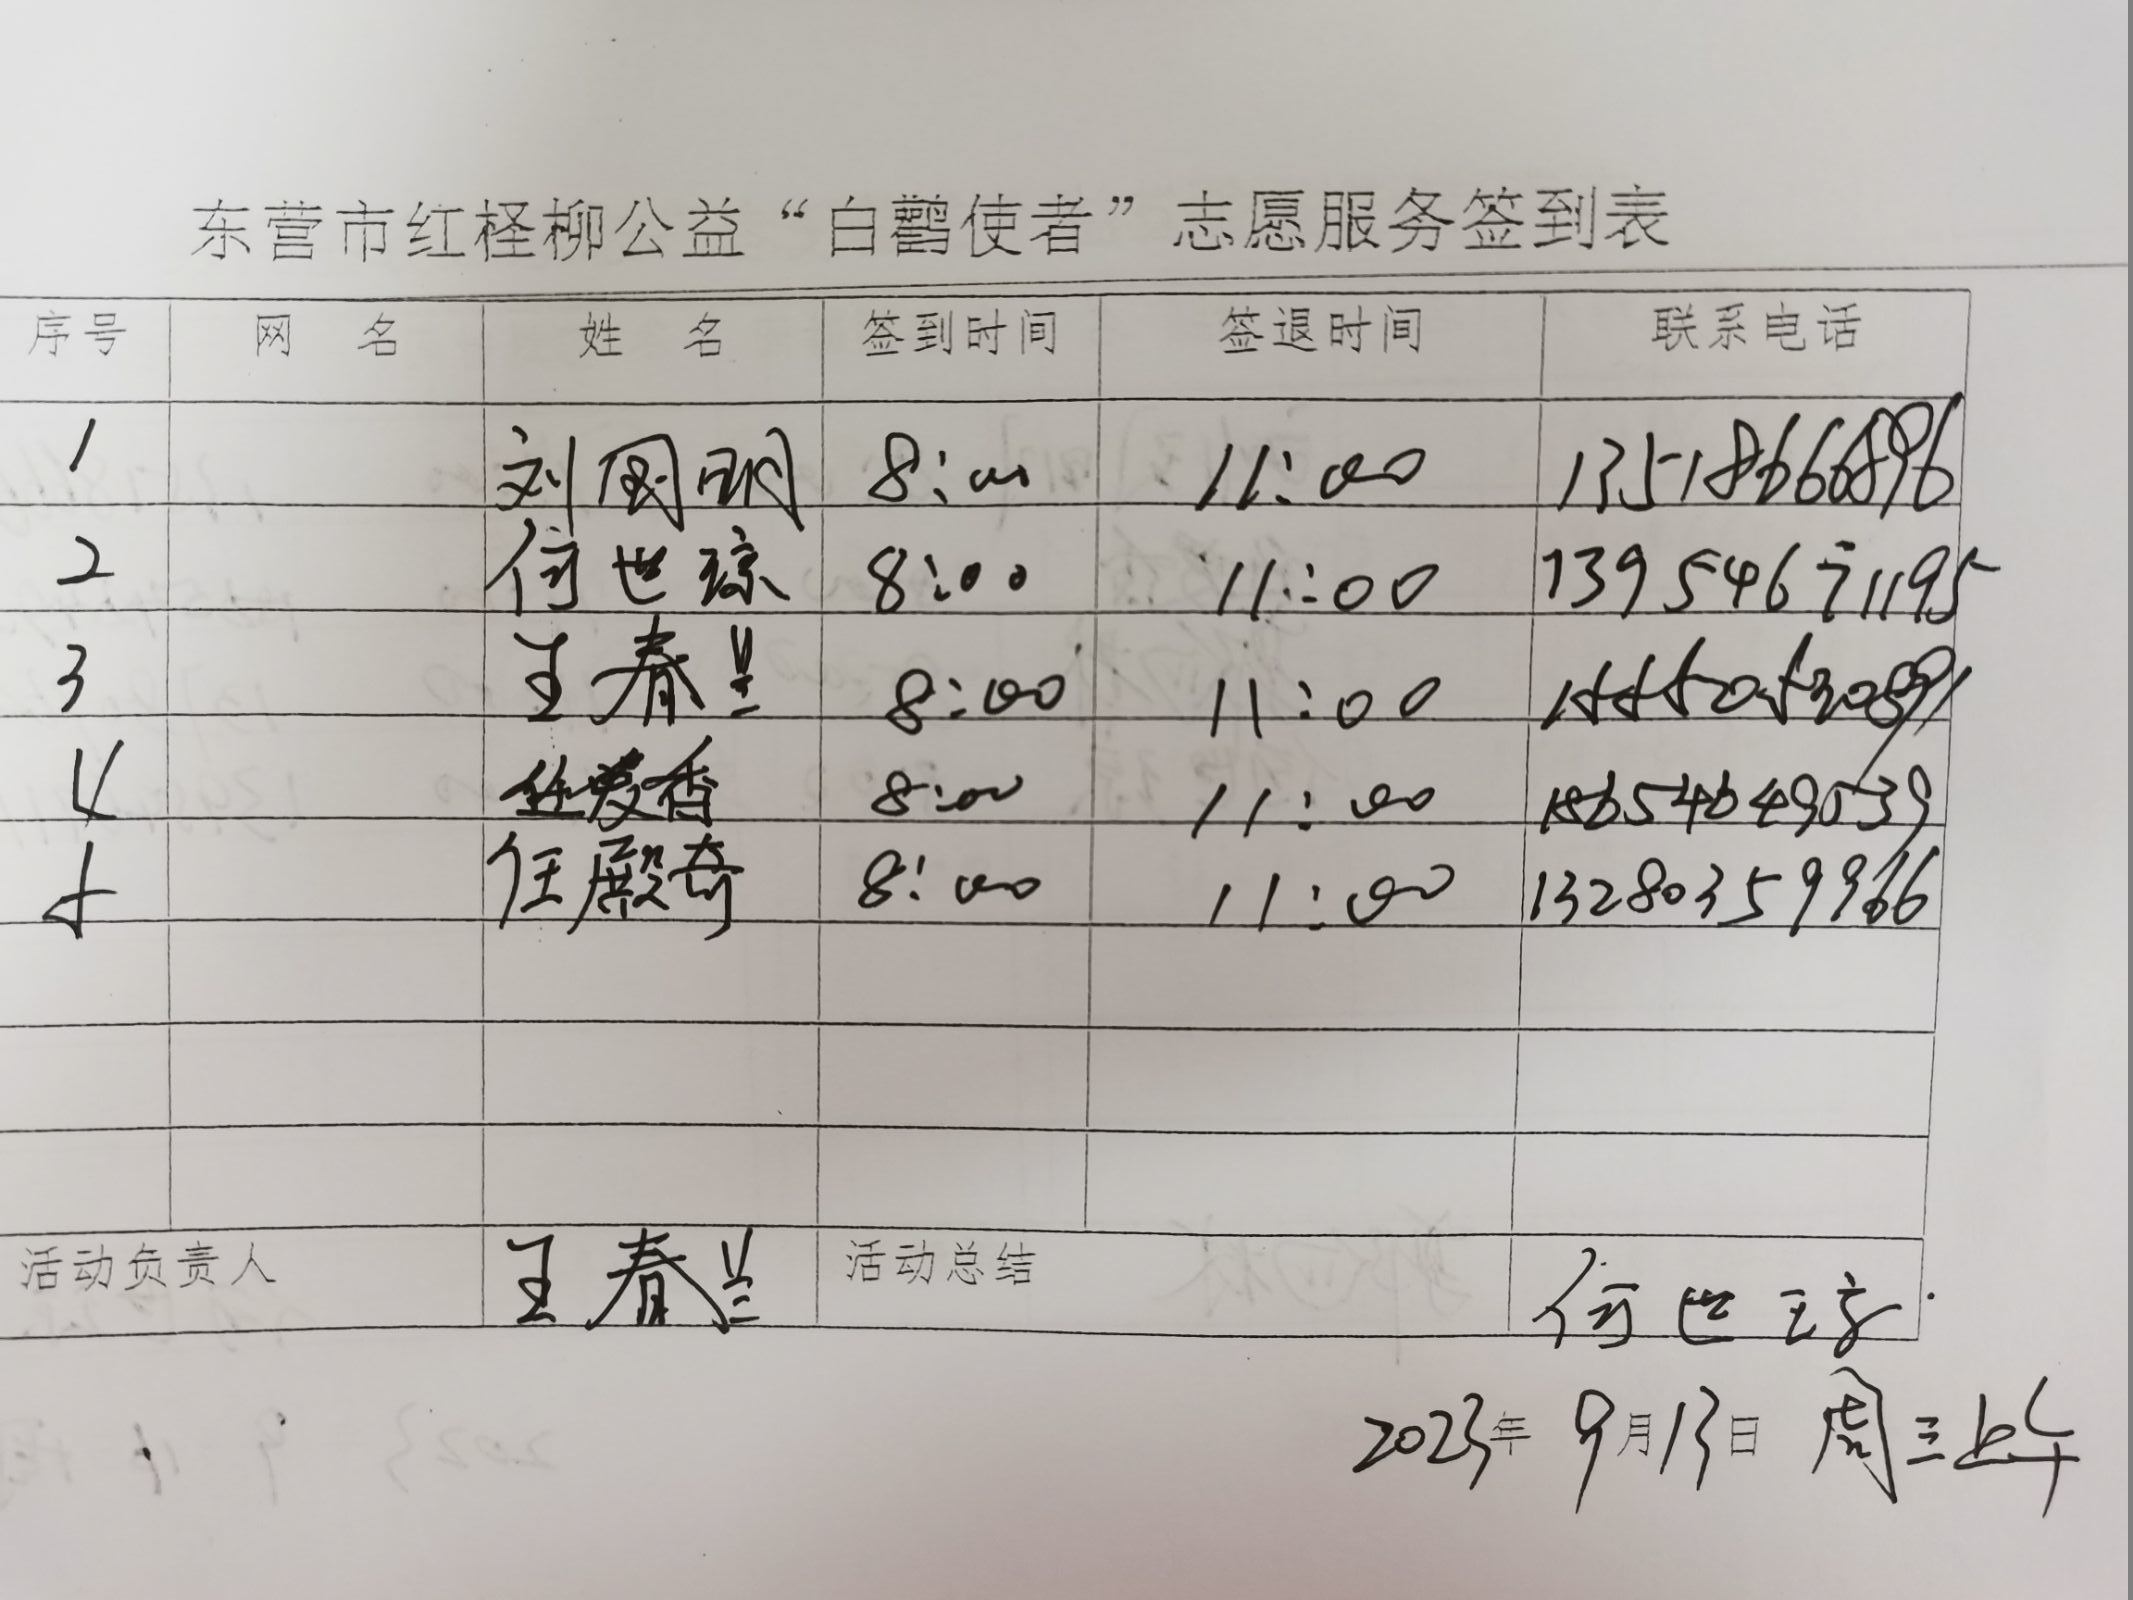 东营市红柽柳公益“白鹳使者”志愿服务签到表
序号 网 名 姓 名 签到时间 签退时间 联系电话
1 刘国明 8:00 11:00 13518666896
2 何世琼 8:00 11:00 13954671195
3 王春兰 8:00 11:00
4 任爱香 8:00 11:00 18654649039
5 任殿奇 8:00 11:00 13280359966
活动负责人 王春兰 活动总结 何世琼
2023年 9月13日 周三上午